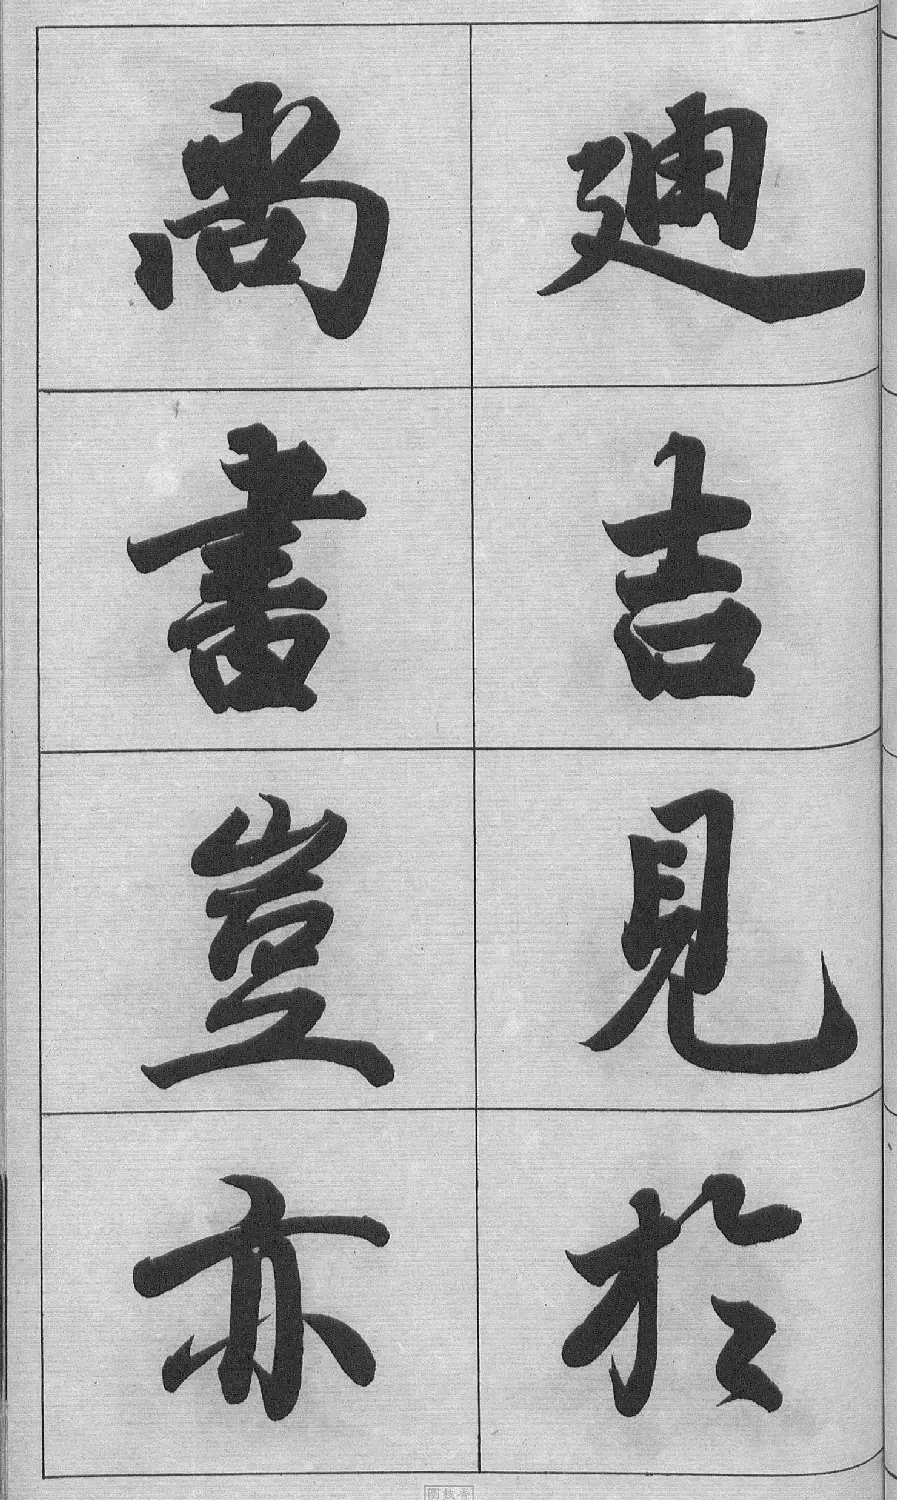 迪吉見於
尚書豈亦